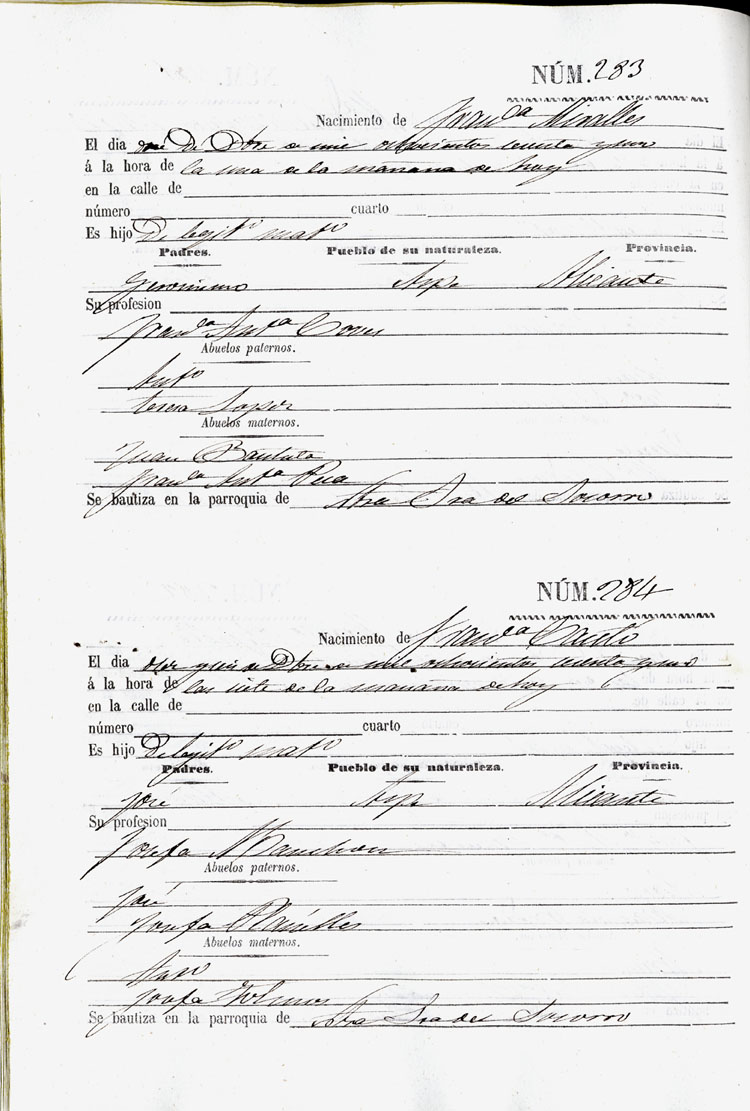 NÚM. 283
Nacimiento de Franca Miralles
El dia once de Dbre de mil ochocientos sesenta y uno
á la hora de la una de la mañana de hoy
en la calle de
número cuarto
Es hijo De legito mato
Padres. Pueblo de su naturaleza. Provincia.
Geronimo Aspe Alicante
Su profesion
Franca Anta
Abuelos paternos.
Anto
Teresa
Abuelos maternos.
Juan Bautista
Franca Anta
Se bautiza en la parroquia de Ntra Sra del Socorro
NÚM. 284
Nacimiento de Franca Cantó
El dia diez y seis de Dbre de mil ochocientos sesenta y uno
á la hora de las siete de la mañana de hoy
en la calle de
número cuarto
Es hijo De legito mato
Padres. Pueblo de su naturaleza. Provincia.
José Aspe Alicante
Su profesion
Josefa Manchon
Abuelos paternos.
José
Josefa
Abuelos maternos.
Josefa
Se bautiza en la parroquia de Ntra Sra del Socorro